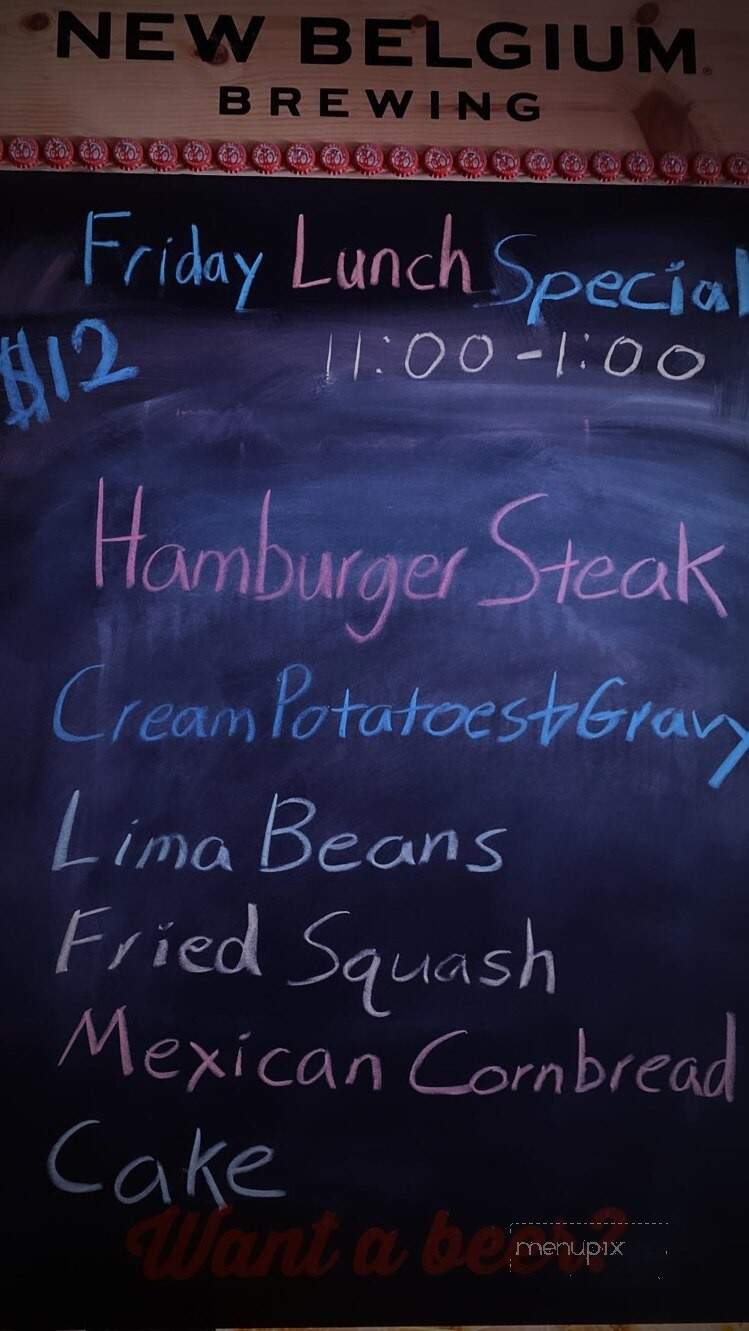 NEW BELGIUM®
BREWING
Friday Lunch Special
$12 11:00-1:00
Hamburger Steak
Cream Potatoes & Gravy
Lima Beans
Fried Squash
Mexican Cornbread
Cake
Want a beer?
menupix